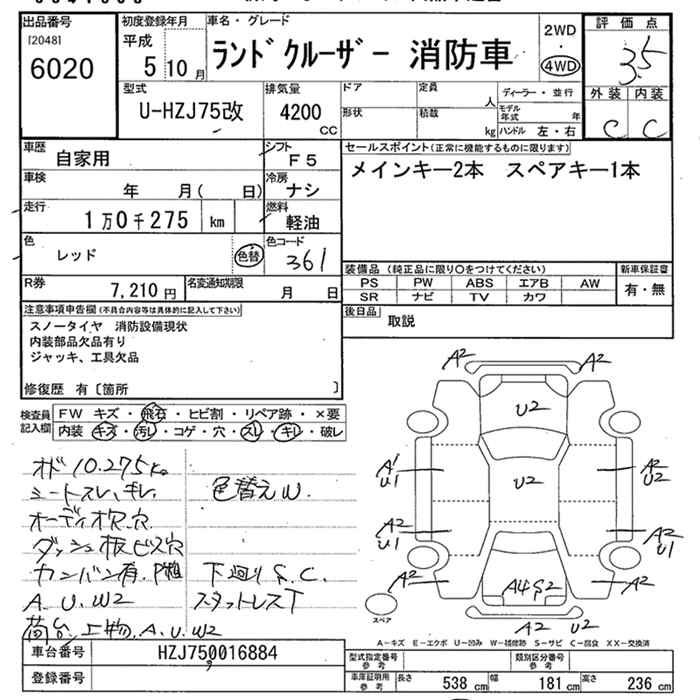 出品番号
[2048]
6020
初度登録年月
平成
5 10 月
車名・グレード
ランドクルーザー 消防車
2WD
・
4WD
評価点
3.5
外装 内装
C C
型式
U-HZJ75改
排気量
4200
CC
ドア
形状
定員
人
積載
kg
ディーラー・並行
モデル年式
年
ハンドル 左・右
車歴
自家用
シフト
F5
車検
年 月( 日)
冷房
ナシ
走行
1万0千275 km
燃料
軽油
色
レッド
色替
色コード
361
R券
7,210 円
名変通知期限
月 日
セールスポイント(正常に機能するものに限ります)
メインキー2本 スペアキー1本
装備品 (純正品に限り○をつけてください)
PS PW ABS エアB AW
SR ナビ TV カワ
新車保証書
有・無
後日品
取説
注意事項申告欄(不具合内容等は具体的に記入して下さい)
スノータイヤ 消防設備現状
内装部品欠品有り
ジャッキ、工具欠品
修復歴 有〔箇所 〕
検査員
記入欄
FW キズ・飛石・ヒビ割・リペア跡・×要
内装 キズ・汚レ・コゲ・穴・スレ・キレ・破レ
オド10.275K
シートスレ、キレ
色替えW.
オーディオ欠.穴
ダッシュ板ビス穴
カンバン有.
下廻りS.C.
A.U.W2
スタットレスT
荷台.上物.A.U.W2
A2 A2
U2
A1
U1
U2
A2
U2
A2
U1
A2
U1
A2
A4S2
A2
A2 U2
スペア
A-キズ E-エクボ U-凹み W-補修跡 S-サビ C-腐食 XX-交換済
車台番号
HZJ750016884
登録番号
型式指定番号
参考
類別区分番号
参考
車庫証明用
参考
長さ 538 cm 幅 181 cm 高さ 236 cm